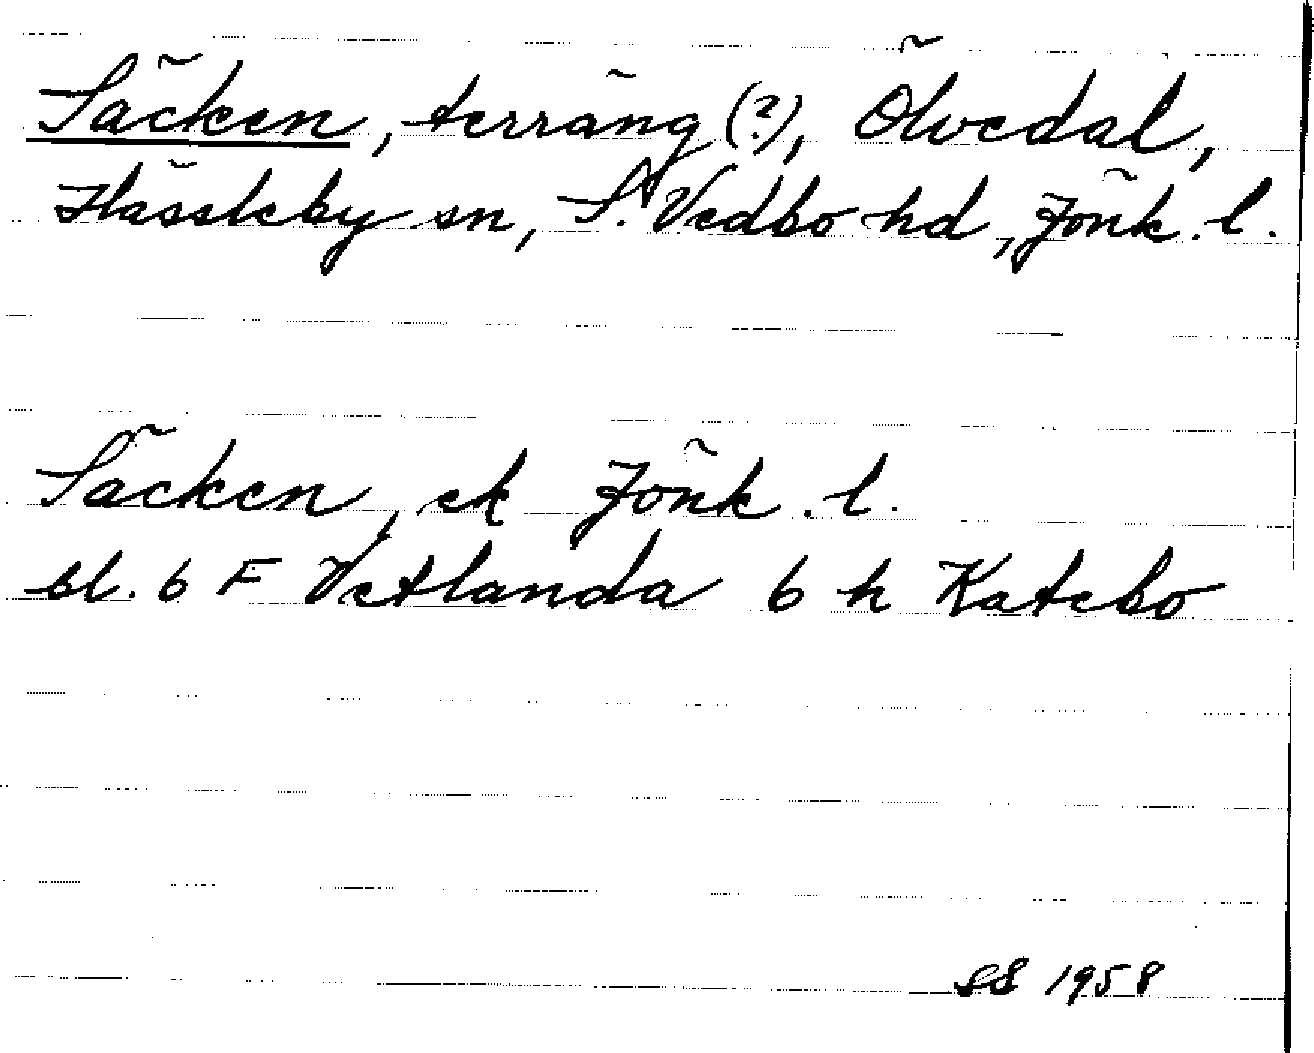 Säcken, terräng (?), Ölvedal,
Hässleby sn, S. Vedbo hd, Jönk. l.
Säcken, ek Jönk. l.
bl. 6 F Vetlanda 6 h Katebo
SS 1958